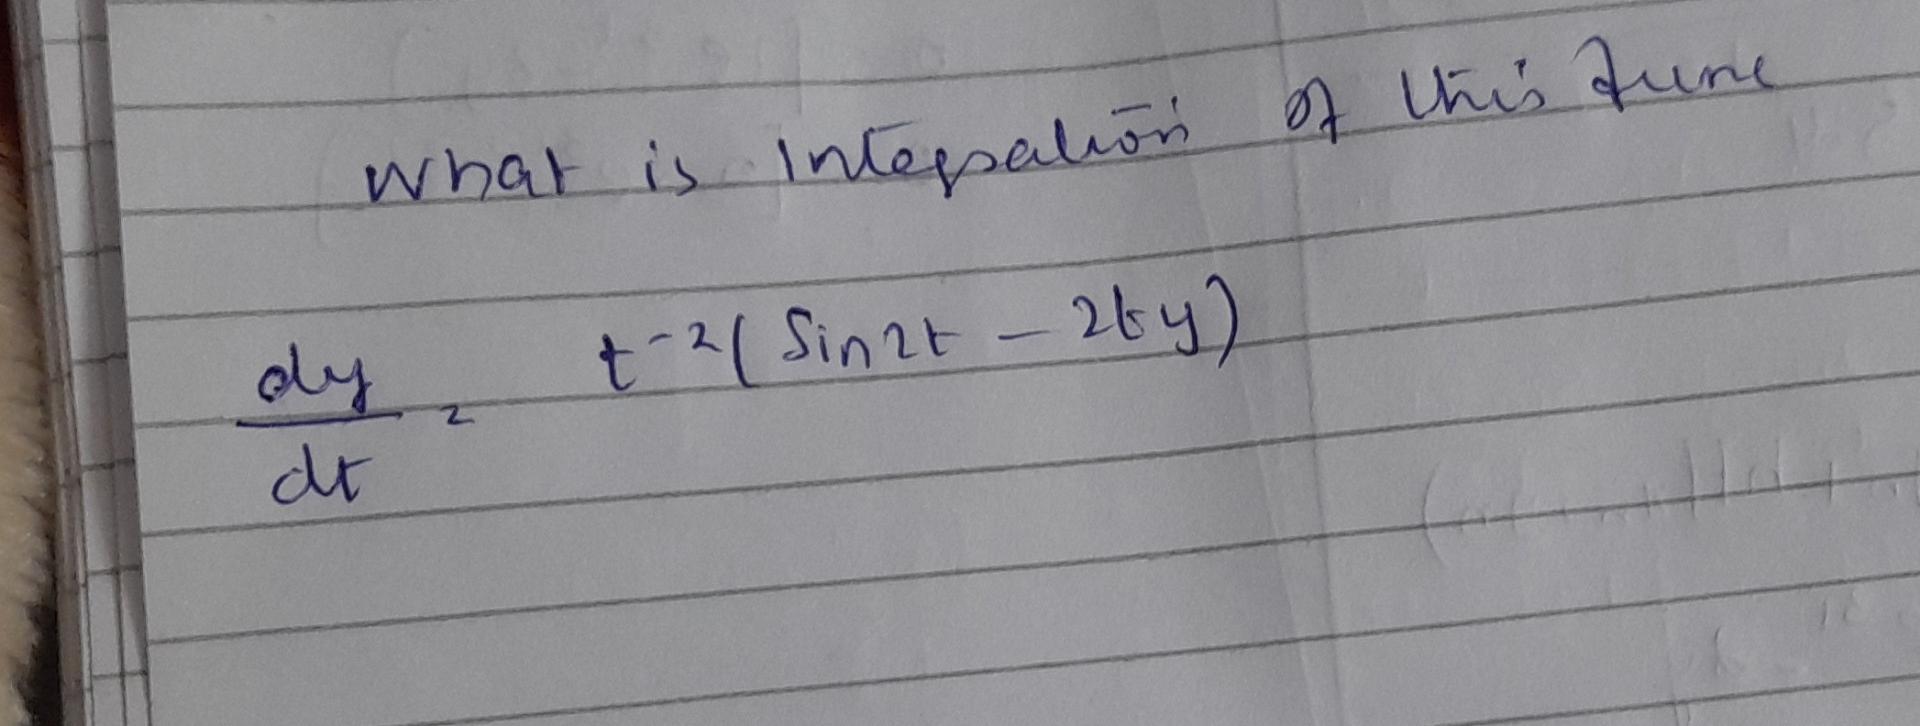 What is Integration of this func
dy/dt = t-2( Sin2t - 2ty)